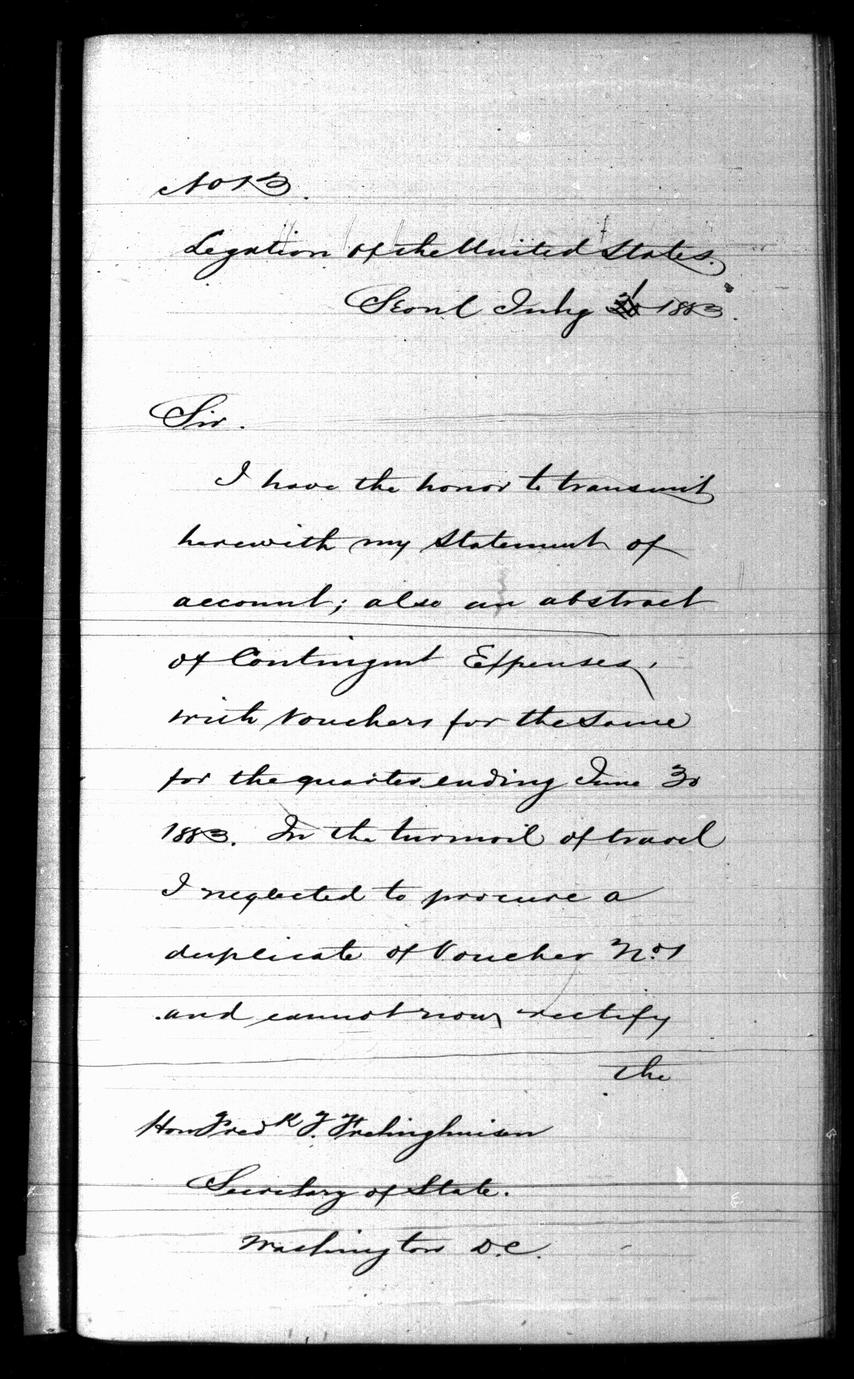 No 13.
Legation of the United States.
Seoul July 1883
Sir.
I have the honor to transmit
herewith my Statement of
account; also an abstract
of Contingent Expenses,
with Vouchers for the Same
for the quarter ending June 30
1883. In the turmoil of travel
I neglected to procure a
duplicate of Voucher No. 1
and cannot now rectify
the
Hon Fredk T. Frelinghuisen
Secretary of State.
Washington D.C.